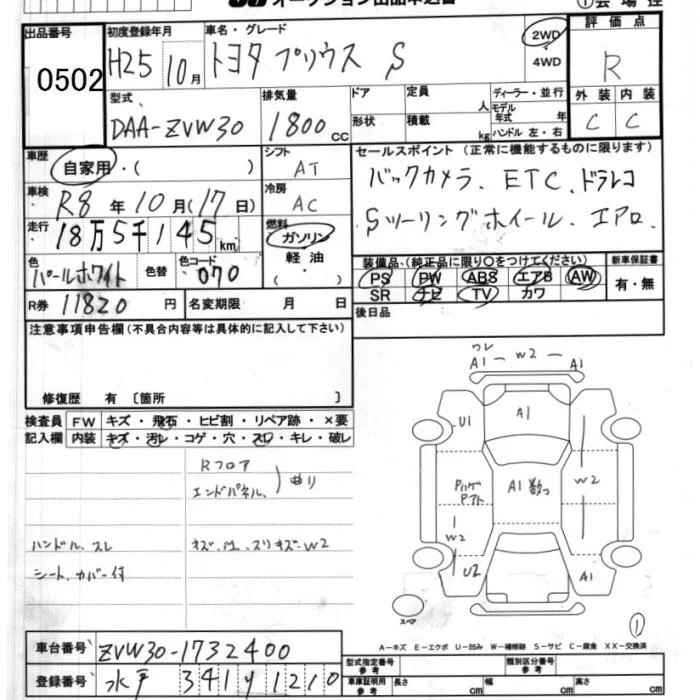 オークション出品申込書
①会場控
出品番号 0502
初度登録年月 H25 10月
車名・グレード トヨタ プリウス S
2WD・4WD
評価点 R
外装 C 内装 C
型式 DAA-ZVW30
排気量 1800cc
ドア 形状
定員 人
積載 kg
ディーラー・並行
モデル年式 年
ハンドル 左・右
車歴 自家用・( )
シフト AT
車検 R8年10月(17日)
冷房 AC
走行 18万5千145km
燃料 ガソリン 軽油 ・( )
色 パールホワイト 色替 色コード 070
R券 11820円 名変期限 月 日
セールスポイント (正常に機能するものに限ります)
バックカメラ、ETC、ドラレコ
Sツーリングホイール、エアロ、
装備品 (純正品に限り○をつけてください) 新車保証書
PS PW ABS エアB AW 有・無
SR ナビ TV カワ
後日品
注意事項申告欄(不具合内容等は具体的に記入して下さい)
修復歴 有〔箇所 〕
検査員 FW キズ・飛石・ヒビ割・リペア跡・×要
記入欄 内装 キズ・汚レ・コゲ・穴・スレ・キレ・破レ
Rフロア
エンドパネル、 曲リ
ハンドル、スレ
シート、カバー付
ワレ
A1 ― W2 ― A1
U1 A1
A1 W2
W2
U2 A1
スペア
①
A-キズ E-エクボ U-凹み W-補修跡 S-サビ C-腐食 XX-交換済
車台番号 ZVW30-1732400
登録番号 水戸 341 1210
型式指定番号 参考 類別区分番号 参考
車庫証明用 参考 長さ cm 幅 cm 高さ cm